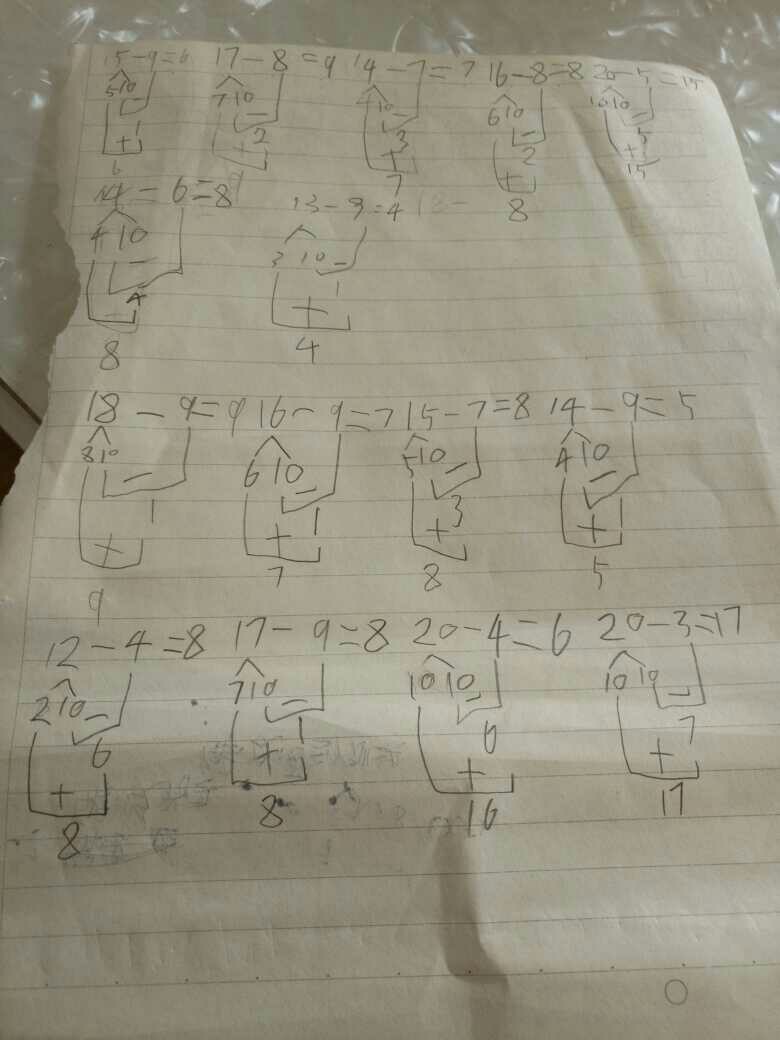 15-9=6 17-8=9 14-7=7 16-8=8 20-5=15
5 10 7 10 4 10 6 10 10 10
- - - - -
1 2 3 2 5
+ + + + +
6 9 7 8 15
14=6=8 13-9=4 18-
4 10 3 10
- -
4 1
+
8 4
18-9=9 16-9=7 15-7=8 14-9=5
8 10 6 10 5 10 4 10
- - - -
1 1 3 1
+ + + +
9 7 8 5
12-4=8 17-9=8 20-4=6 20-3=17
2 10 7 10 10 10 10 10
- - - -
6 1 6 7
+ + + +
8 8 16 17